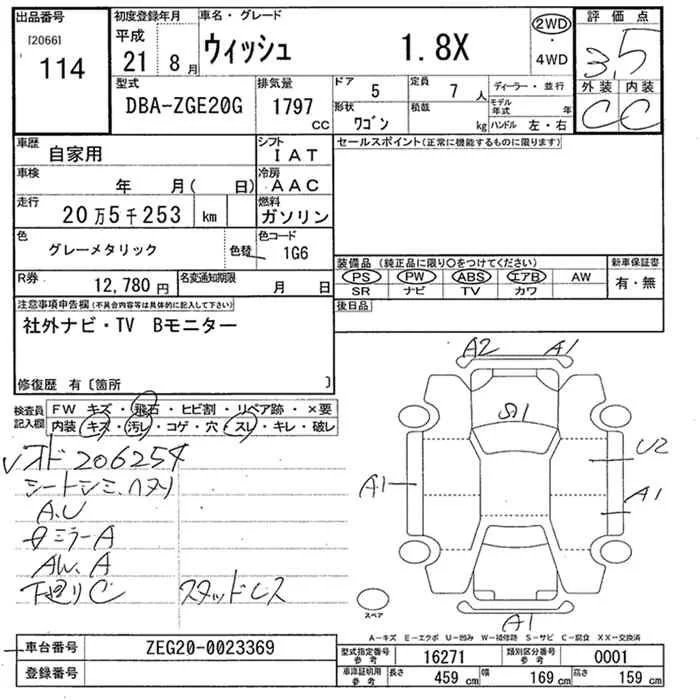 出品番号 初度登録年月 車名・グレード 評価点
[2066] 114 平成 21 8月 ウィッシュ 1.8X 2WD・4WD 3.5
型式 排気量 ドア 5 定員 7人 ディーラー・並行 外装 内装
DBA-ZGE20G 1797CC 形状 ワゴン 積載 kg モデル年式 年 C C
ハンドル 左・右
車歴 自家用 シフト IAT セールスポイント(正常に機能するものに限ります)
車検 年 月( 日) 冷房 AAC
走行 20万5千253 km 燃料 ガソリン
色 グレーメタリック 色替 色コード 1G6 装備品(純正品に限り○をつけてください) 新車保証書
PS PW ABS エアB AW 有・無
R券 12,780円 名変通知期限 月 日 SR ナビ TV カワ
注意事項申告欄(不具合内容等は具体的に記入して下さい) 後日品
社外ナビ・TV Bモニター
修復歴 有〔箇所 〕
検査員記入欄 FW キズ・飛石・ヒビ割・リペア跡・×要
内装 キズ・汚レ・コゲ・穴・スレ・キレ・破レ
A2 A1
S1
U2
A1 A1
A1
オド 206254
シートシミ、ヘタリ
A.U
ミラーA
AW.A
下廻りC スタッドレス
スペア
A-キズ E-エクボ U-凹み W-補修跡 S-サビ C-腐食 XX-交換済
車台番号 ZEG20-0023369
登録番号
型式指定番号 参考 16271 類別区分番号 参考 0001
車庫証明用 参考 長さ 459cm 幅 169cm 高さ 159cm